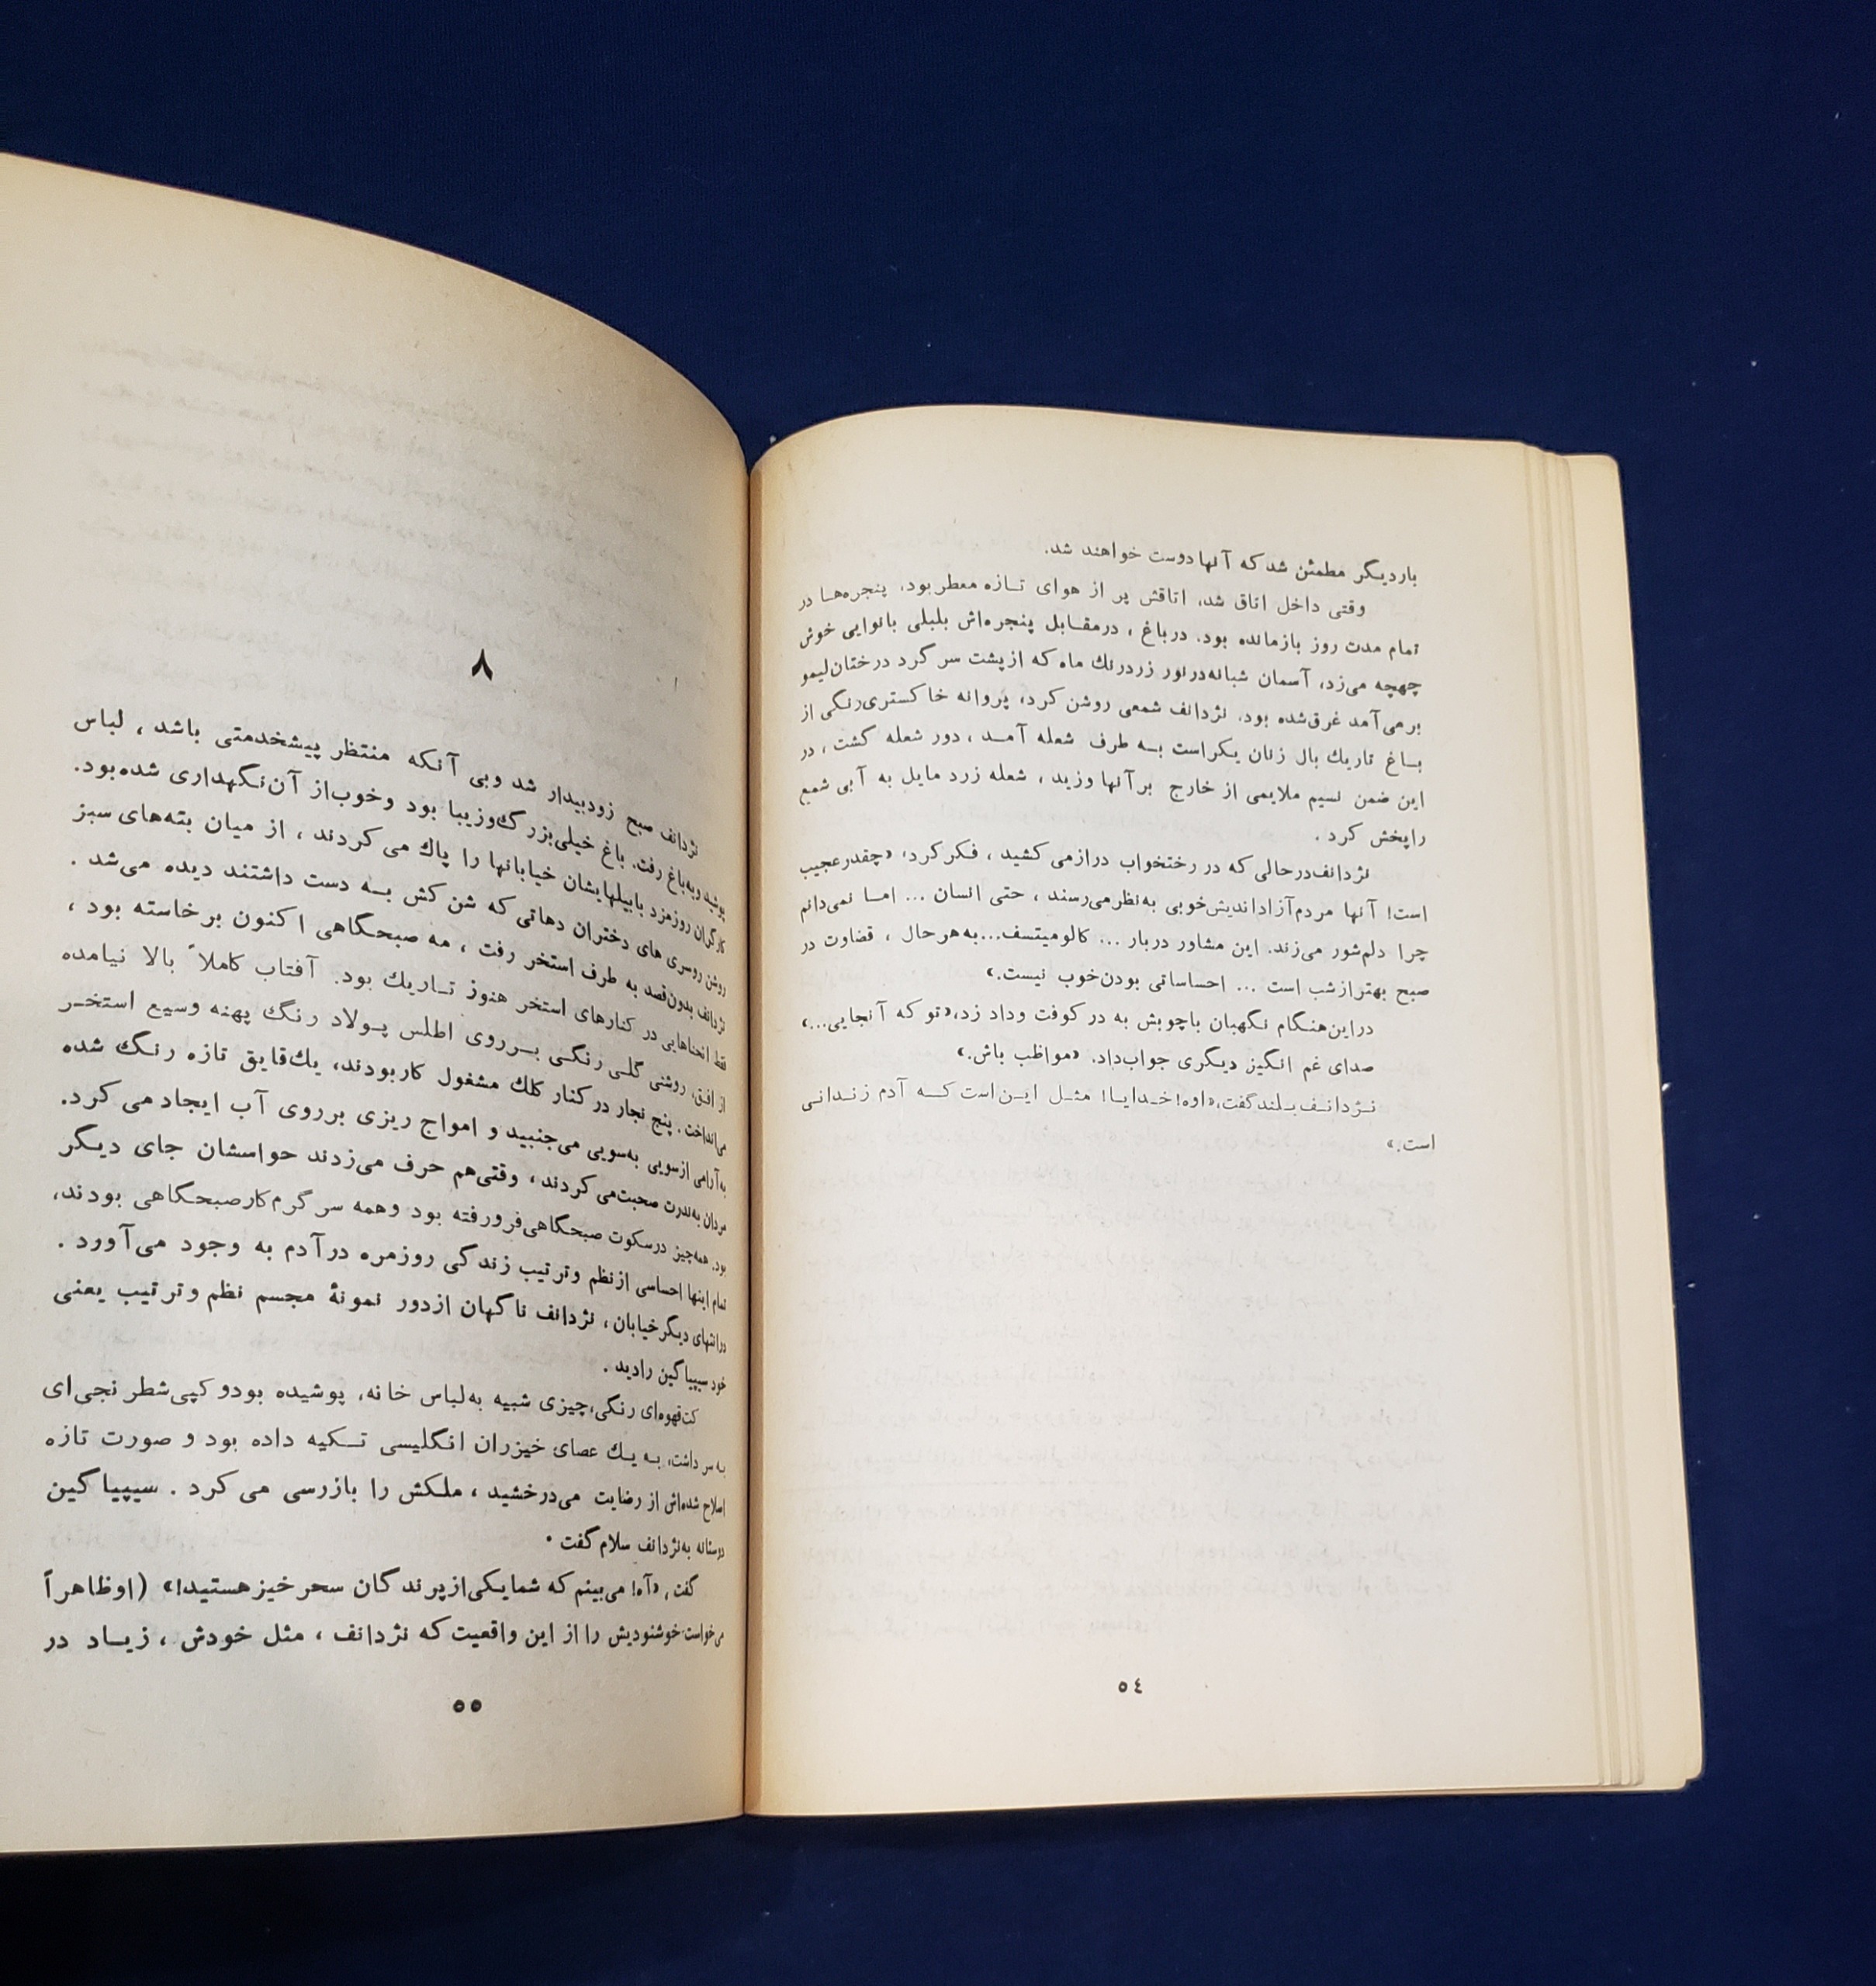 باردیگر مطمئن شد که آنها دوست خواهند شد.
وقتی داخل اتاق شد، اتاقش پر از هوای تـازه معطر بود، پنجره‌هـا در
تمام مدت روز بازمانده بود. در باغ ، در مقـابل پنجره‌اش بلبلی با نوایی خوش
چهچه می‌زد، آسمان شبانه در نور زردرنگ ماه که از پشت سر گرد درختان لیمو
برمی‌آمد غرق شده بود. نژدانف شمعی روشن کرد، پروانه خاکستری‌رنگی از
بـاغ تاریك بال زنان یکراست بـه طرف شعله آمـد ، دور شعله گشت ، در
این ضمن نسیم ملایمی از خارج برآنها وزید ، شعله زرد مایل به آبی شمع
را پخش کرد .
نژدانف در حالی که در رختخواب دراز می کشید ، فکر کرد، «چقدر عجیب
است! آنها مردم آزاداندیش خوبی به‌نظر می‌رسند ، حتی انسان ... امـا نمی‌دانم
چرا دلم شور می‌زند. این مشاور دربار ... کالومیتسف...به‌هرحال ، قضاوت در
صبح بهتر از شب است ... احساساتی بودن خوب نیست.»
در این هنگام نگهبان با چوبش به در کوفت و داد زد،«تو که آنجایی...»
صدای غم انگیز دیگری جواب داد. «مواظب باش.»
نـژدانـف بـلند گفت،«اوه! خـدایـا! مثـل ایـن است کـه آدم زنـدانـی
است.»
٥٤
۸
نژدانف صبح زود بیدار شد و بی آنکه منتظر پیشخدمتی باشد ، لباس
پوشید و به باغ رفت. باغ خیلی بزرگ و زیبا بود و خوب از آن نگهداری شده بود.
کارگران روزمزد با بیلهایشان خیابانها را پاك می کردند ، از میان بته‌های سبز
روشن روسری های دختران دهاتی که شن کش بـه دست داشتند دیده می‌شد .
نژدانف بدون قصد به طرف استخر رفت ، مه صبحگاهی اکنون برخاسته بود ،
فقط انحناهایی در کنارهای استخر هنوز تـاریك بود. آفتاب کاملاً بالا نیامده
از افق، روشنی گلـی رنگـی بـرروی اطلس پـولاد رنگ پهنه وسیع استخـر
می‌انداخت . پنج نجار در کنار کلك مشغول کار بودند، یك قایق تازه رنـگ شده
به آرامی از سویی به‌سویی می‌جنبید و امواج ریزی برروی آب ایجاد می کرد.
مردان به‌ندرت صحبت می کردند ، وقتی هم حرف می‌زدند حواسشان جای دیـگر
بود. همه‌چیز در سکوت صبحگاهی فرورفته بود و همه سر گرم کار صبحگاهی بودند،
تمام اینها احساسی از نظم و ترتیب زندگی روزمره در آدم به وجود می‌آورد .
در انتهای دیگر خیابان ، نژدانف ناگهان از دور نمونهٔ مجسم نظم و ترتیب یعنی
خود سیپیاگین را دید .
کت قهوه‌ای رنگی، چیزی شبیه به لباس خانه، پوشیده بود و کپی شطرنجی‌ای
به سر داشت، بـه یـك عصای خیزران انگلیسی تـکیه داده بود و صورت تازه
اصلاح شده‌اش از رضایت می‌درخشید ، ملـکش را بازرسی می کرد . سیپیاگین
دوستانه به نژدانف سلام گفت .
گفت، «آه! می‌بینم که شما یکی از پرندگان سحرخیز هستید!» (او ظاهراً
می‌خواست خوشنودیش را از این واقعیت که نژدانف ، مثل خودش ، زیـاد در
٥٥